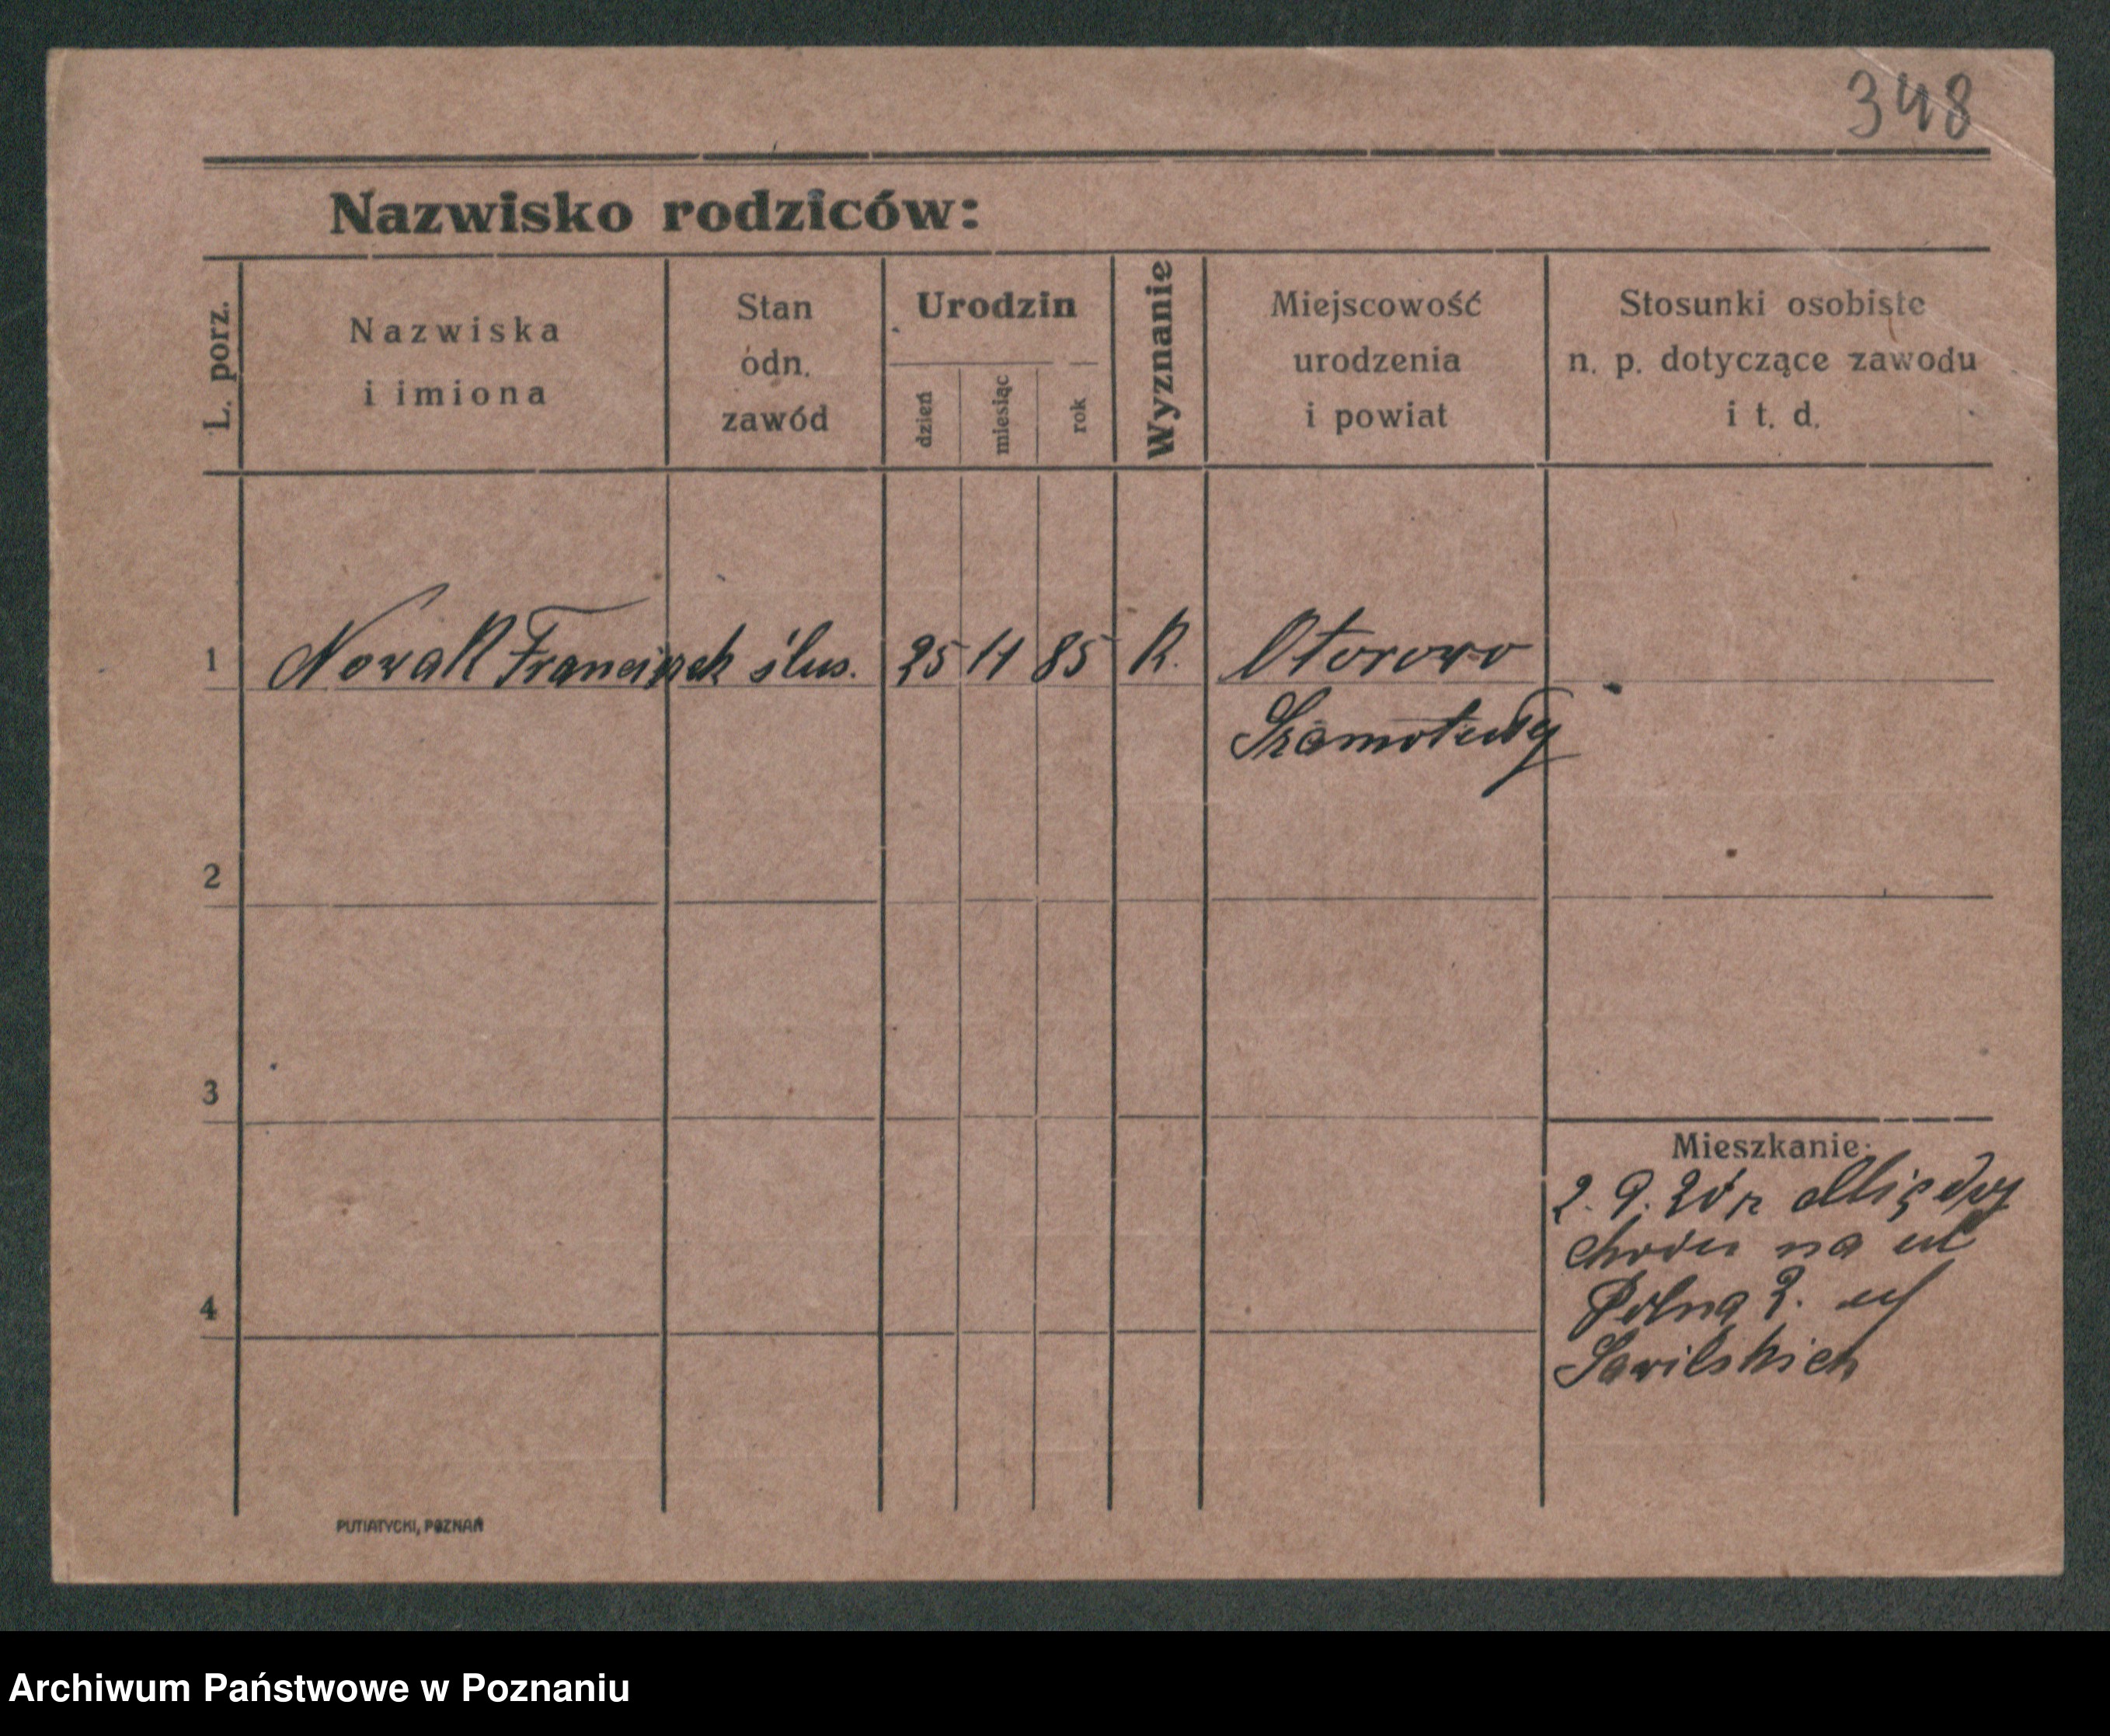 348
Nazwisko rodziców:
L. porz.
Nazwiska
i imiona
Stan
odn.
zawód
Urodzin
dzień
miesiąc
rok
Wyznanie
Miejscowość
urodzenia
i powiat
Stosunki osobiste
n. p. dotyczące zawodu
i t. d.
1 Nowak Franciszek ślus. 25 11 85 K. Otorowo
Szamotuły
2
3
Mieszkanie:
2. 9. 20 r Między
chodu na ul
4
Polna 2. u
PUTIATYCKI, POZNAŃ
Archiwum Państwowe w Poznaniu